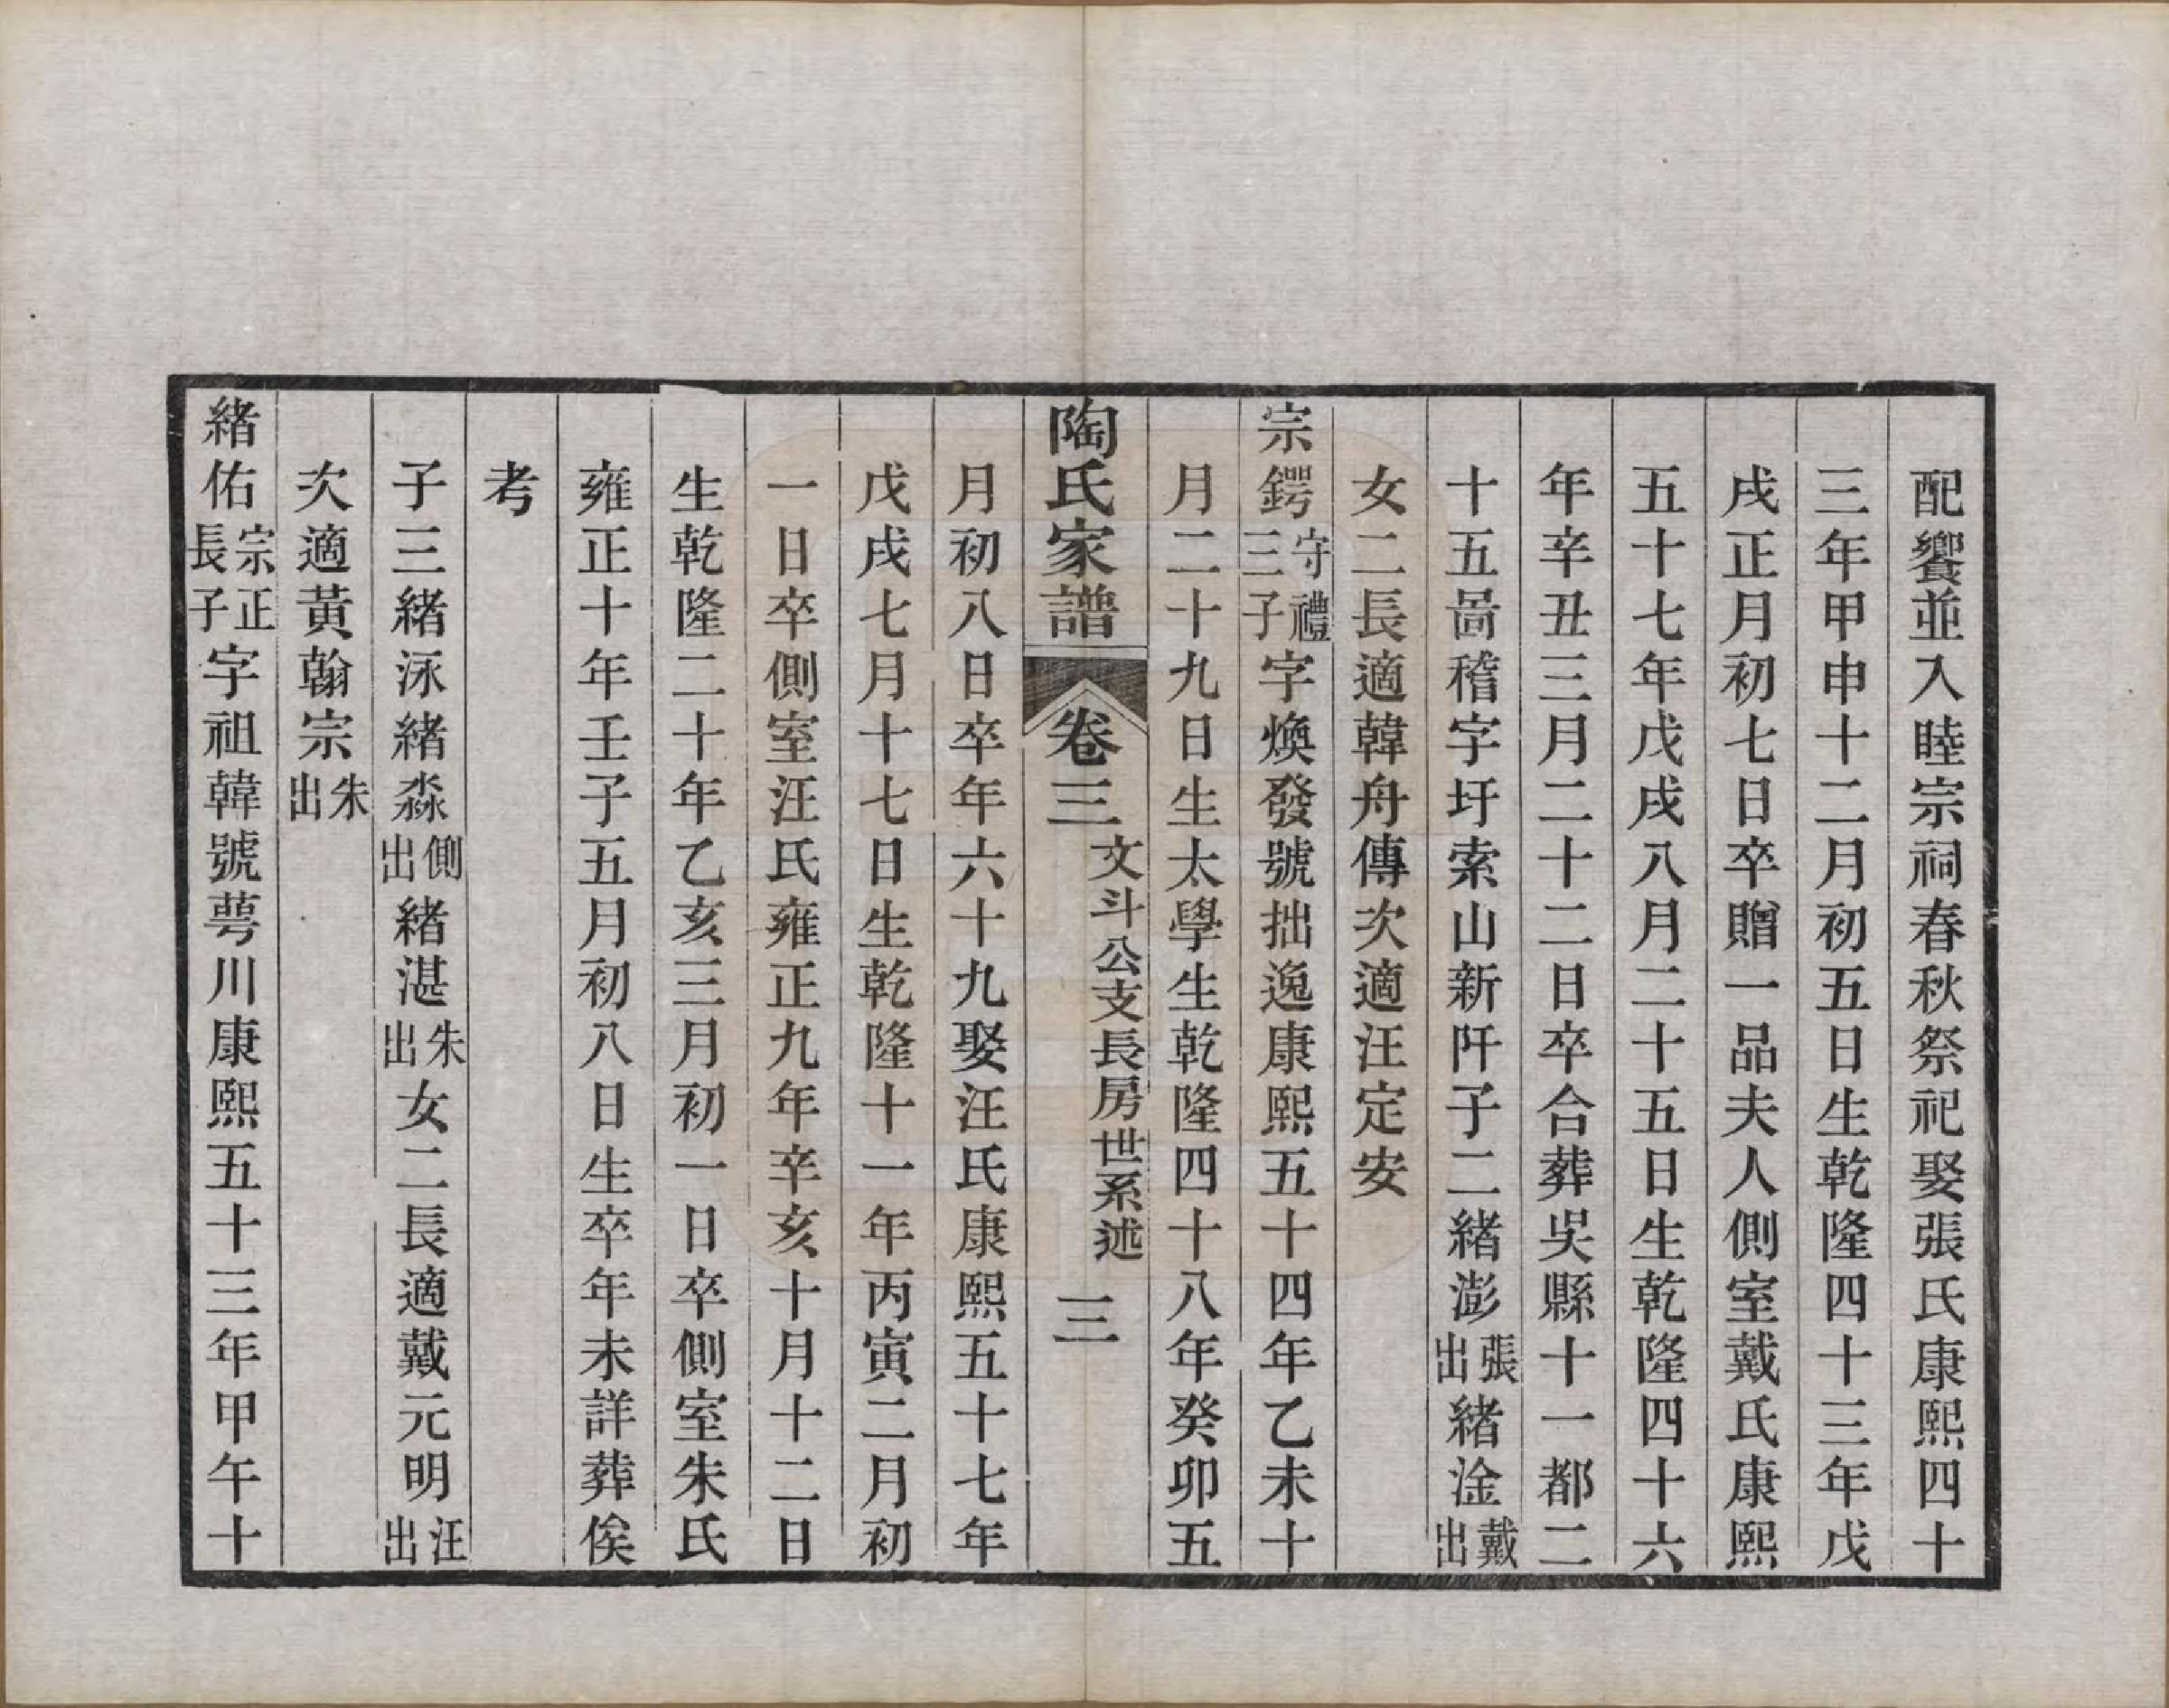 配饗並入睦宗祠春秋祭祀娶張氏康熙四十
三年甲申十二月初五日生乾隆四十三年戊
戌正月初七日卒贈一品夫人側室戴氏康熙
五十七年戊戌八月二十五日生乾隆四十六
年辛丑三月二十二日卒合葬吳縣十一都二
十五啚稽字圩索山新阡子二緒澎張出緒淦戴出
女二長適韓舟傳次適汪定安
宗鍔守禮三子字煥發號拙逸康熙五十四年乙未十
月二十九日生太學生乾隆四十八年癸卯五
陶氏家譜 卷三 文斗公支長房世系述 三
月初八日卒年六十九娶汪氏康熙五十七年
戊戌七月十七日生乾隆十一年丙寅二月初
一日卒側室汪氏雍正九年辛亥十月十二日
生乾隆二十年乙亥三月初一日卒側室朱氏
雍正十年壬子五月初八日生卒年未詳葬俟
考
子三緒泳緒淼側出緒湛朱出女二長適戴元明汪出
次適黃翰宗朱出
緒佑宗正長子字祖韓號萼川康熙五十三年甲午十